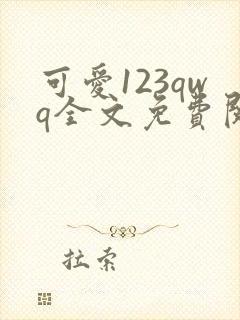 可愛123qw
q全文免費閱
拉索